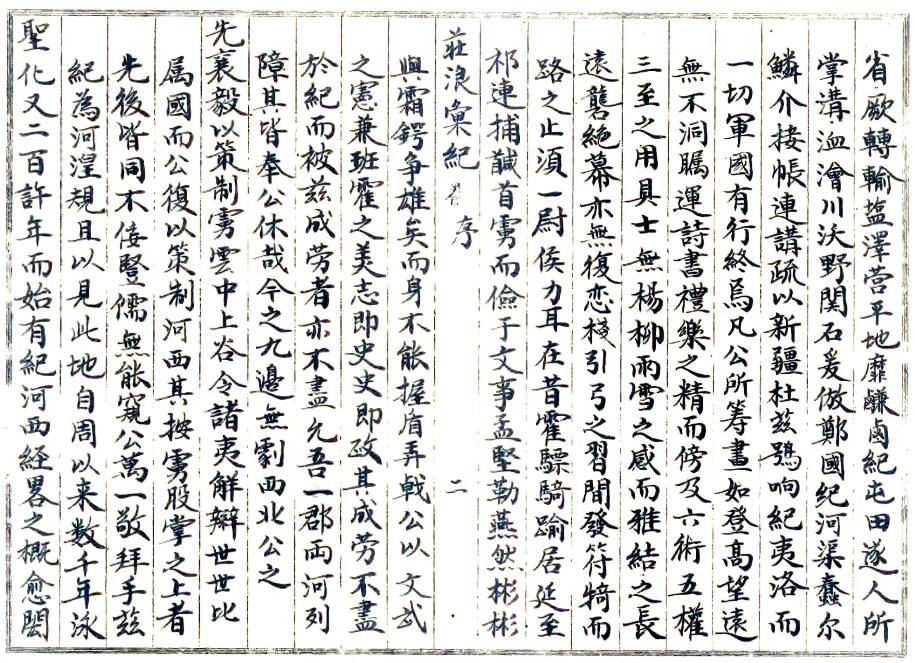 省厥轉輸塩澤营平地靡鹻鹵紀屯田遂人所
掌溝洫澮川沃野関石爰倣鄭國紀河渠蠢尔
鱗介接帳連講疏以新疆杜茲鴞响紀夷洛而
一切軍國有行終焉凡公所筹畫如登高望遠
無不洞瞩運詩書禮樂之精而傍及六術五權
三至之用具士無楊柳雨雪之感而雅結之長
遠讋絶幕亦無復恋棧引弓之習間發符犄而
路之止須一尉侯力耳在昔霍驃騎踰居延至
祁連捕馘首虜而儉于文事孟堅勒燕然彬彬
莊浪彙紀 序 二
與霜鍔争雄矣而身不能握盾弄戟公以文武
之憲兼班霍之美志即史史即政其成劳不盡
於紀而被茲成劳者亦不盡允吾一郡両河列
障其皆奉公休哉今之九邊無劇西北公之
先襄毅以策制虜雲中上谷令諸夷解辮世世比
属國而公復以策制河西其按虜股掌之上者
先後皆同不佞豎儒無能窺公萬一敬拜手茲
紀為河湟規且以見此地自周以来数千年泳
聖化又二百許年而始有紀河西経畧之概愈閎